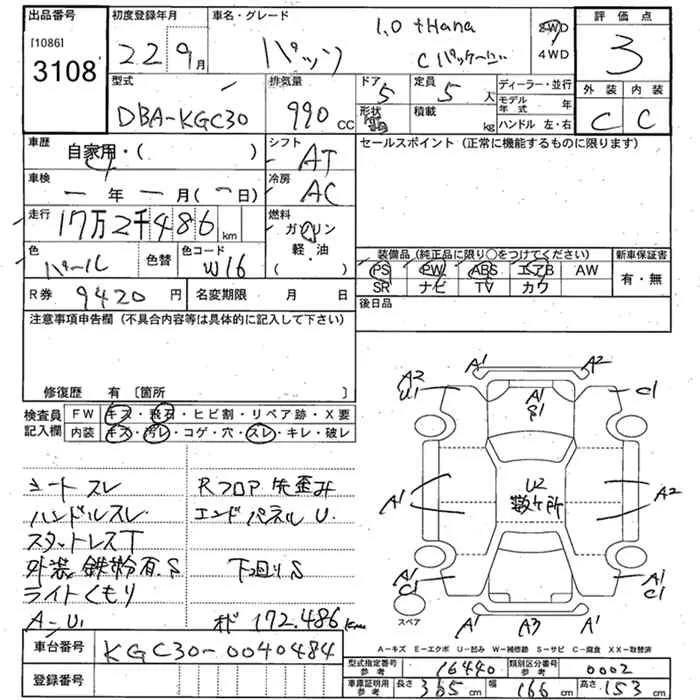 出品番号
[1086]
3108
初度登録年月
22 9月
車名・グレード
パッソ
1.0 +Hana
Cパッケージ
2WD
4WD
評価点
3
外装 内装
C C
型式
DBA-KGC30
排気量
990 CC
ドア
5
形状
定員
5 人
積載
kg
ディーラー・並行
モデル年式 年
ハンドル 左・右
車歴
自家用・( )
シフト
AT
セールスポイント(正常に機能するものに限ります)
車検
一 年 一 月(一日)
冷房
AC
走行
17万2千486 km
燃料
ガソリン
軽・油
( )
色
パール
色替
色コード
W16
装備品(純正品に限り○をつけてください)
PS PW ABS エアB AW
SR ナビ TV カワ
新車保証書
有・無
R券 9420円
名変期限 月 日
後日品
注意事項申告欄(不具合内容等は具体的に記入して下さい)
修復歴 有〔箇所 〕
検査員記入欄
FW キズ・飛石・ヒビ割・リペア跡・X要
内装 キズ・汚レ・コゲ・穴・スレ・キレ・破レ
シートスレ
ハンドルスレ
スタットレスT
外装鉄粉有.S
ライトくもり
A-U1
Rフロア 先歪み
エンドパネルU.
下廻りS
172.486km
A2
U1
A1
A2
C1
A1
U2
数ヶ所
A1
A2
A1
C1
A1
C1
A1
A3
A1
スペア
A-キズ E-エクボ U-凹み W-補修跡 S-サビ C-腐食 XX-取替済
車台番号
KGC30-0040484
登録番号
型式指定番号参考 16440
類別区分番号参考 0002
車庫証明用参考
長さ 365 cm 幅 166 cm 高さ 153 cm